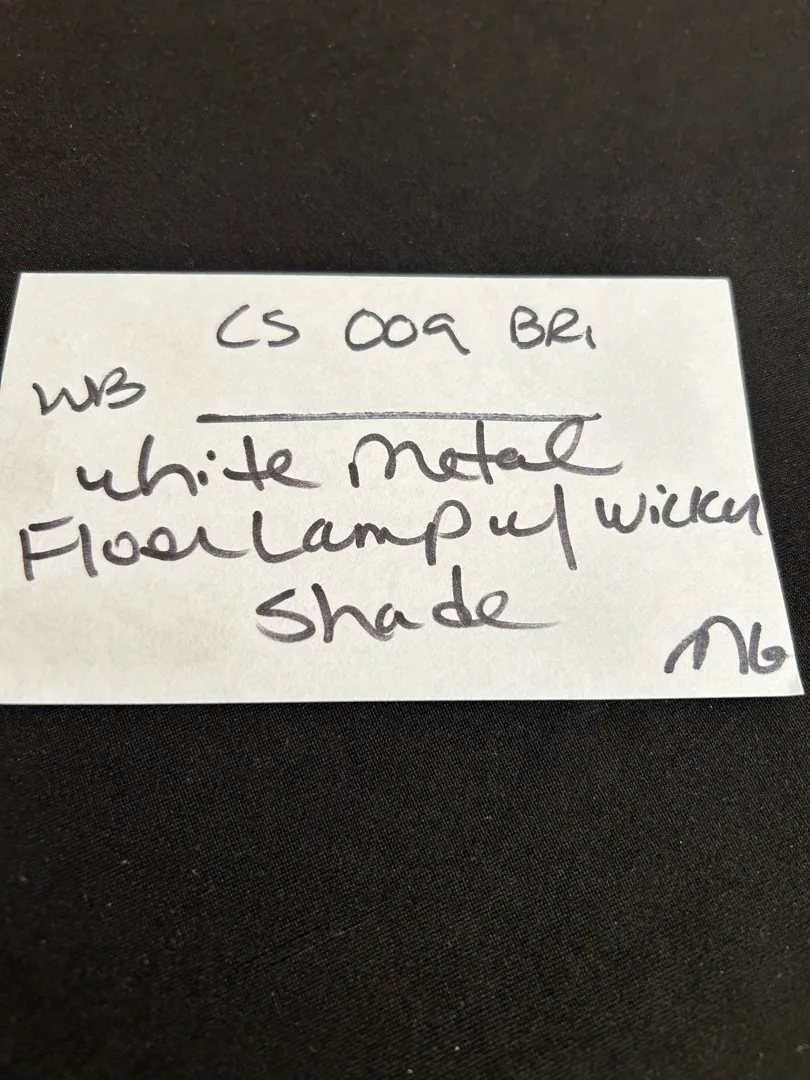 CS 009 BR1
WB
white Metal
Floor Lamp w/ Wicker
Shade
NG